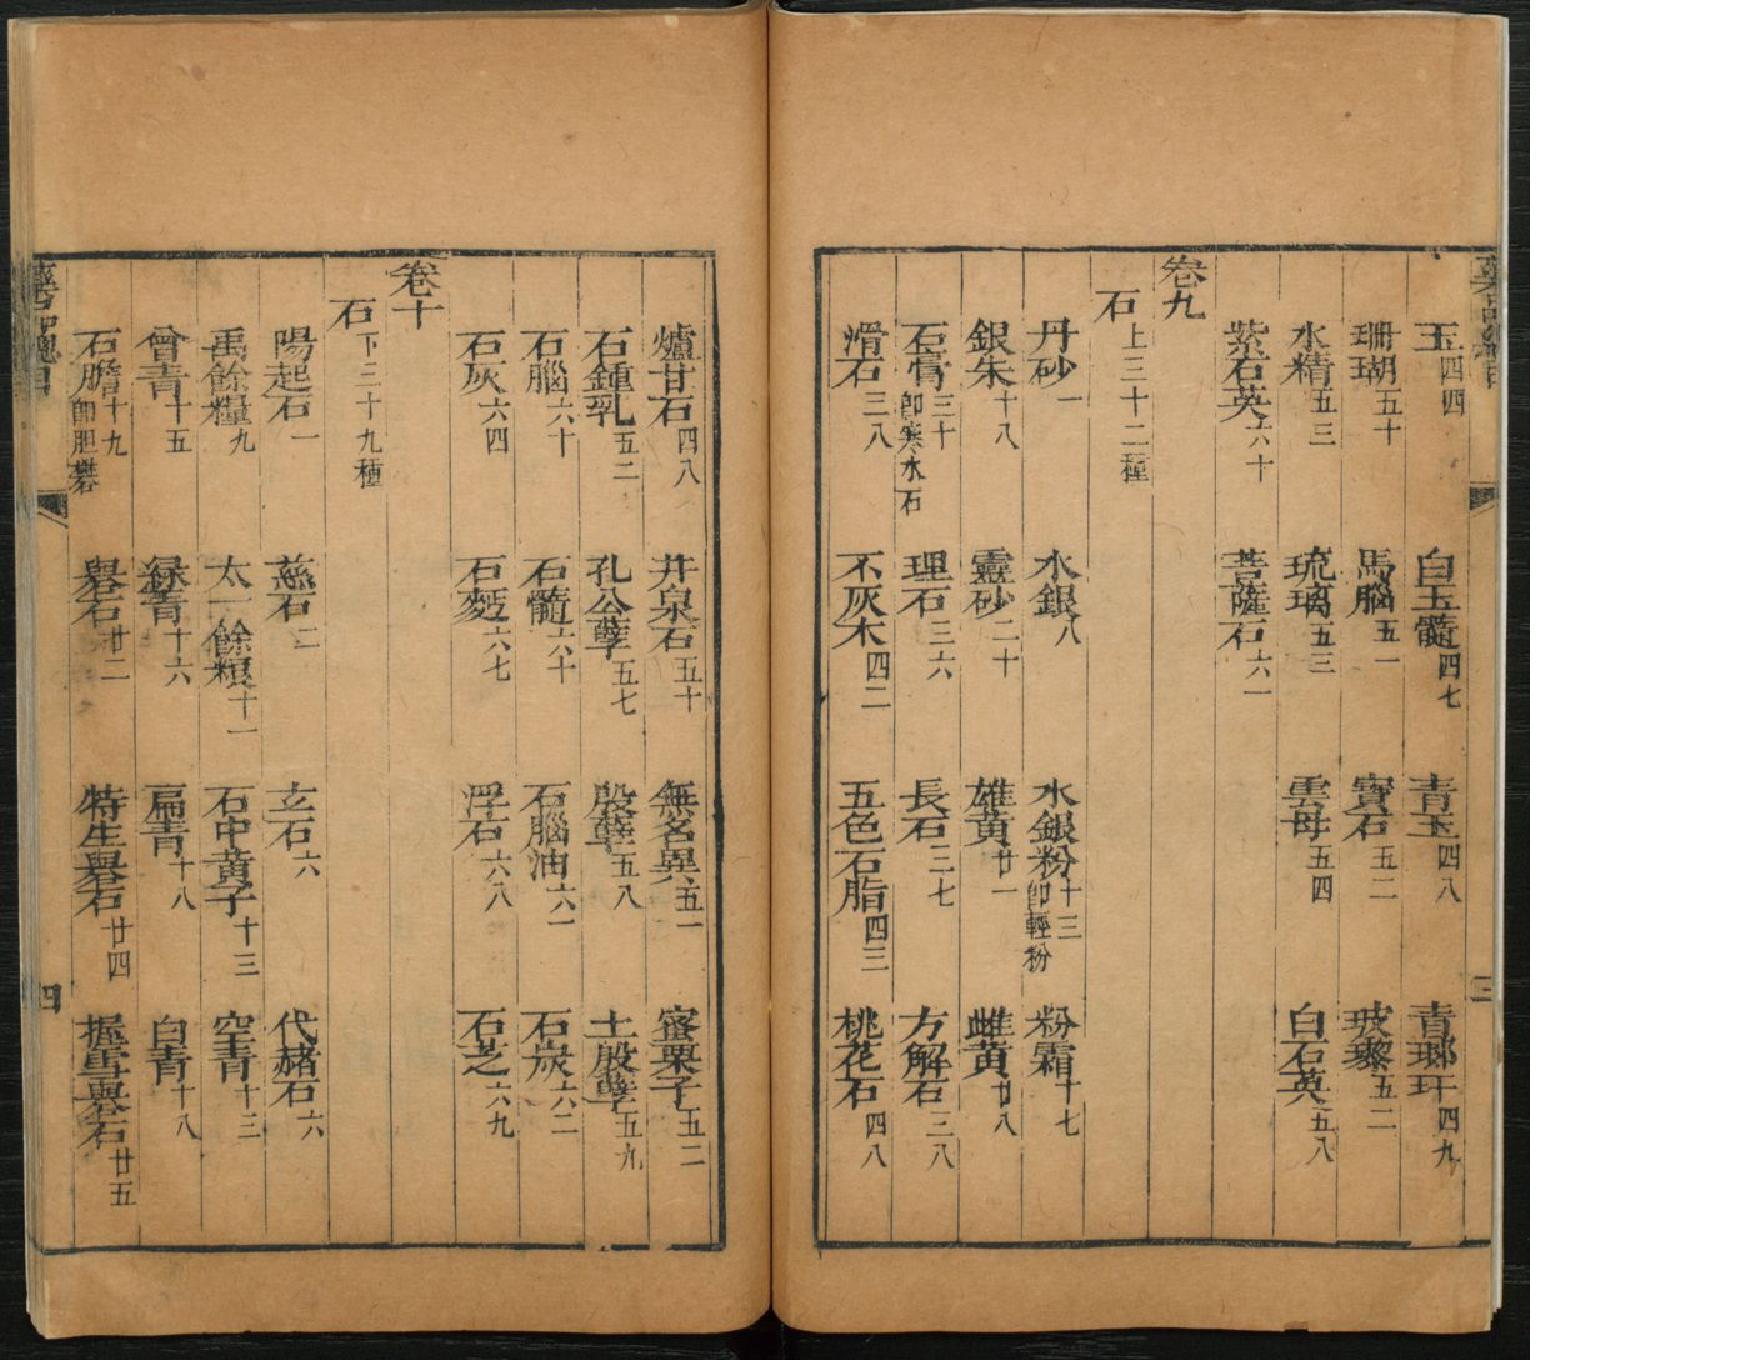 玉四四 白玉髓四七 青玉四八 青瑯玕四九
珊瑚五十 馬腦五一 寶石五二 玻瓈五二
水精五三 琉璃五三 雲母五四 白石英五八
紫石英六十 菩薩石六一
卷九
石上三十二種
丹砂一 水銀八 水銀粉十三即輕粉 粉霜十七
銀朱十八 靈砂二十 雄黃廿一 雌黃廿八
石膏三十即寒水石 理石三六 長石三七 方解石三八
滑石三八 不灰木四二 五色石脂四三 桃花石四八
爐甘石四八 井泉石五十 無名異五一 蜜栗子五二
石鍾乳五二 孔公孽五七 殷孽五八 土殷孽五九
石腦六十 石髓六十 石腦油六一 石炭六二
石灰六四 石麪六七 浮石六八 石芝六九
卷十
石下三十九種
陽起石一 慈石二 玄石六 代赭石六
禹餘糧九 太一餘糧十一 石中黃子十三 空青十三
曾青十五 綠青十六 扁青十八 白青十八
石膽十九即胆礬 礜石廿二 特生礜石廿四 握雪礜石廿五
四